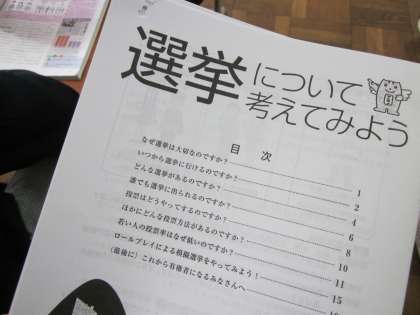 選挙について
考えてみよう
目次
なぜ選挙は大切なのですか？ 1
いつから選挙に行けるのですか？ 2
どんな選挙があるのですか？ 4
誰でも選挙に出られるのですか？ 6
投票はどうやってするのですか？ 8
ほかにどんな投票方法があるのですか？ 10
若い人の投票率はなぜ低いのですか？ 11
ロールプレイによる模擬選挙をやってみよう！ 15
（最後に）これから有権者になるみなさんへ